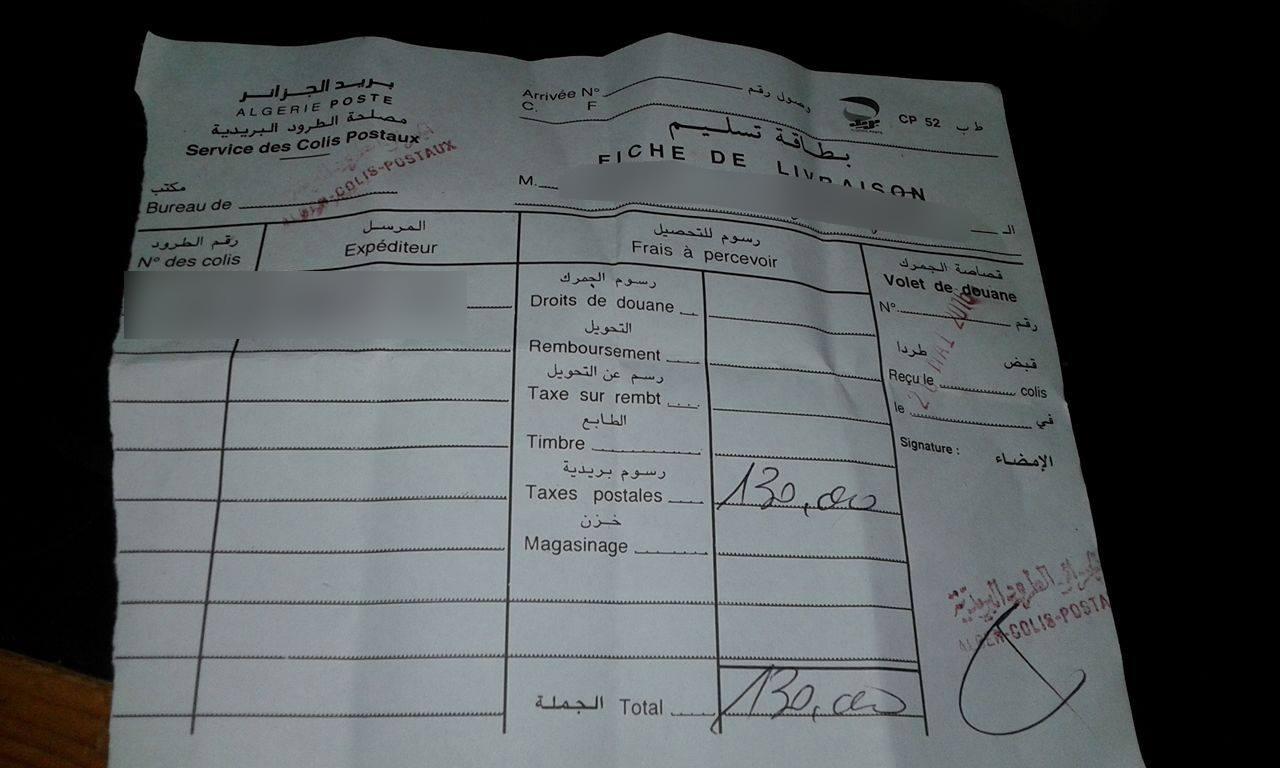 بريد الجزائر
ALGERIE POSTE
مصلحة الطرود البريدية
Service des Colis Postaux
ALGER-COLIS-POSTAUX
مكتب
Bureau de
Arrivée N° وصول رقم
C. F
CP 52 ط ب
بطاقة تسليم
FICHE DE LIVRAISON
M.
الـ
رقم الطرود
N° des colis
المرسل
Expéditeur
رسوم للتحصيل
Frais à percevoir
رسوم الجمرك
Droits de douane
التحويل
Remboursement
رسم عن التحويل
Taxe sur rembt
الطابع
Timbre
رسوم بريدية
Taxes postales 130,00
خزن
Magasinage
الجملة Total 130,00
قصاصة الجمرك
Volet de douane
N° رقم
قبض طردا
Reçu le colis
le في
Signature : الإمضاء
الطرود البريدية
ALGER-COLIS-POSTA